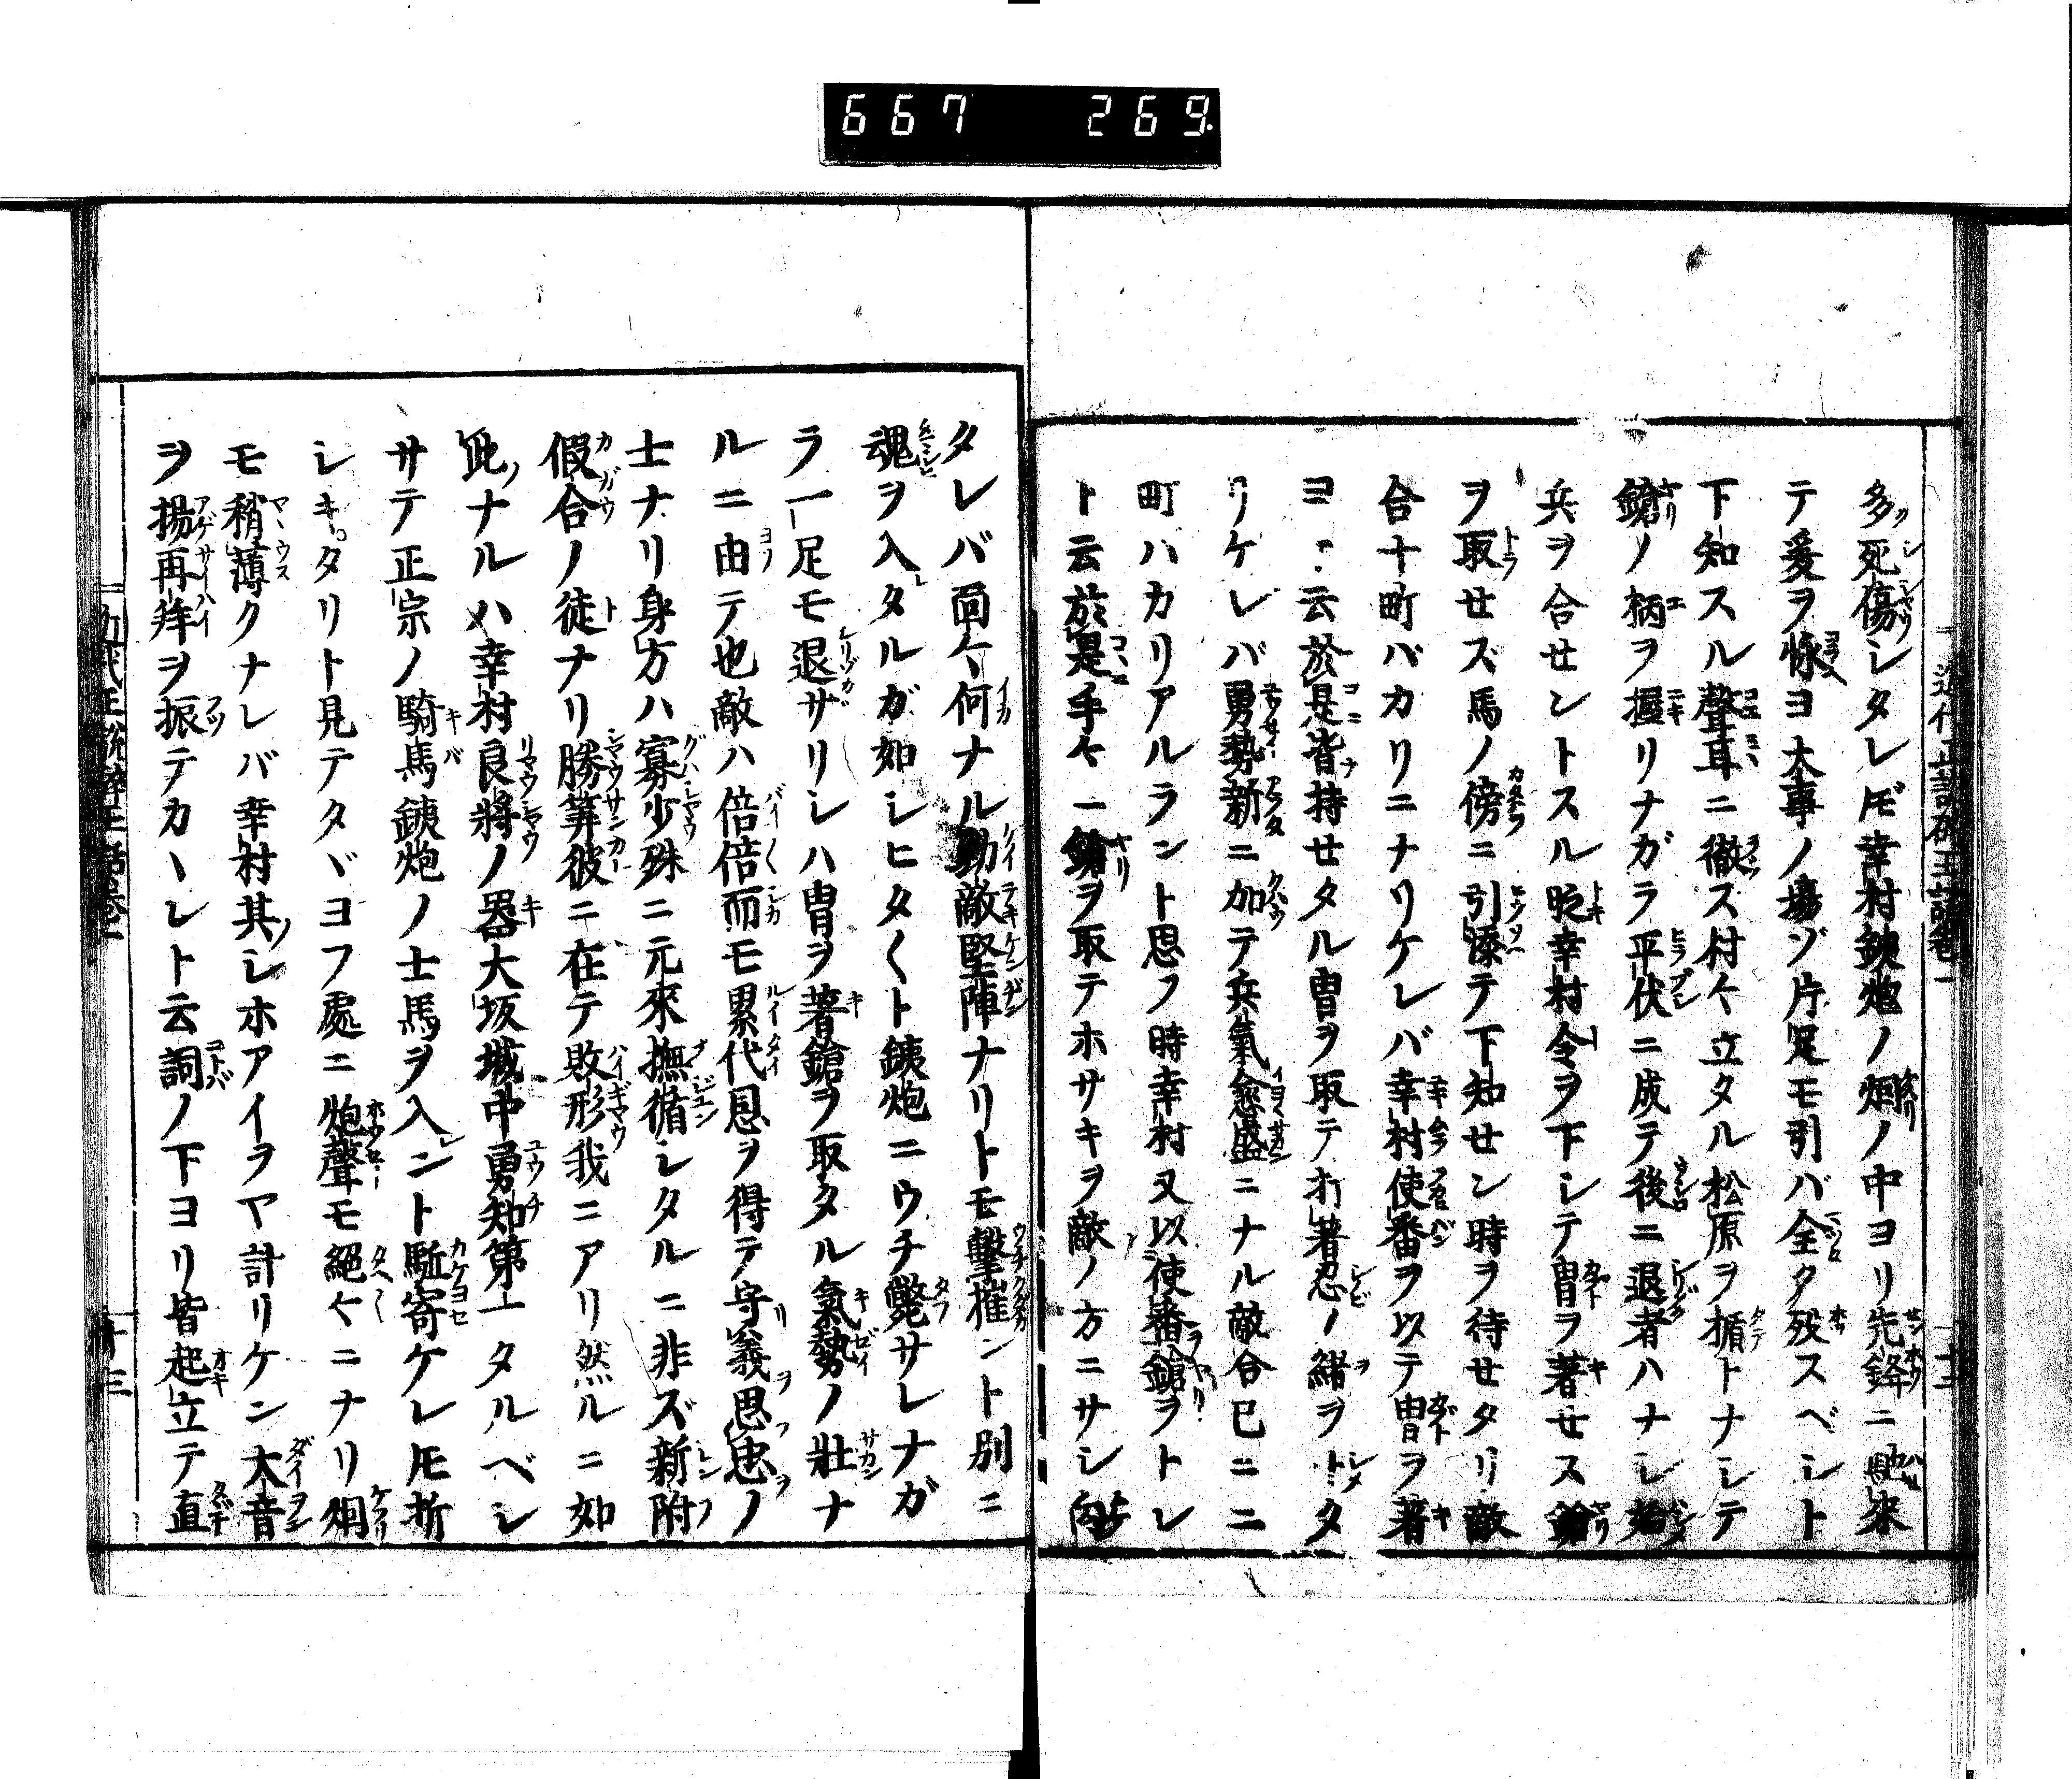 667 269.
多死傷シタレ𪜈幸村鐵炮ノ烟ノ中ヨリ先鋒ニ馳来
テ爰ヲ怺ヨ大事ノ場ゾ片足モ引バ全タ残スベシト
下知スル聲耳ニ徹ス村々立タル松原ヲ楯トナシテ
鎗ノ柄ヲ握リナガラ平伏ニ成テ後ニ退者ハナシ始
兵ヲ合セントスル時幸村令ヲ下シテ冑ヲ著セス鎗
ヲ取セズ馬ノ傍ニ引添テ下知セン時ヲ待セタリ敵
合十町バカリニナリケレバ幸村使番ヲ以テ冑ヲ著
ヨト云於是皆持セタル冑ヲ取テ打著忍ノ緒ヲトタ
リケレバ勇勢新ニ加テ兵氣愈盛ニナル敵合已ニ二
町ハカリアルラント思フ時幸村又以使番鎗ヲトレ
ト云於是手々ニ鎗ヲ取テホサキヲ敵ノ方ニサシ向
タレバ面々何ナル勍敵堅陣ナリトモ撃摧ント別ニ
魂ヲ入タルガ如シヒタ〱ト鐵炮ニウチ斃サレナガ
ラ一足モ退ザリシハ冑ヲ著鎗ヲ取タル氣勢ノ壯ナ
ルニ由テ也敵ハ倍倍而モ累代恩ヲ得テ守義思忠ノ
士ナリ身方ハ寡少殊ニ元來撫循シタルニ非ズ新附
假合ノ徒ナリ勝筭彼ニ在テ敗形我ニアリ然ルニ如
此ナルハ幸村良將ノ器大坂城中勇知第一タルベシ
サテ正宗ノ騎馬鐵炮ノ士馬ヲ入ント駈寄ケレ𪜈折
シキタリト見テタヾヨフ處ニ炮聲モ絕々ニナリ烟
モ稍薄クナレバ幸村其シホアイヲヤ計リケン大音
ヲ揚再拜ヲ振テカヽレト云詞ノ下ヨリ皆起立テ直
十三